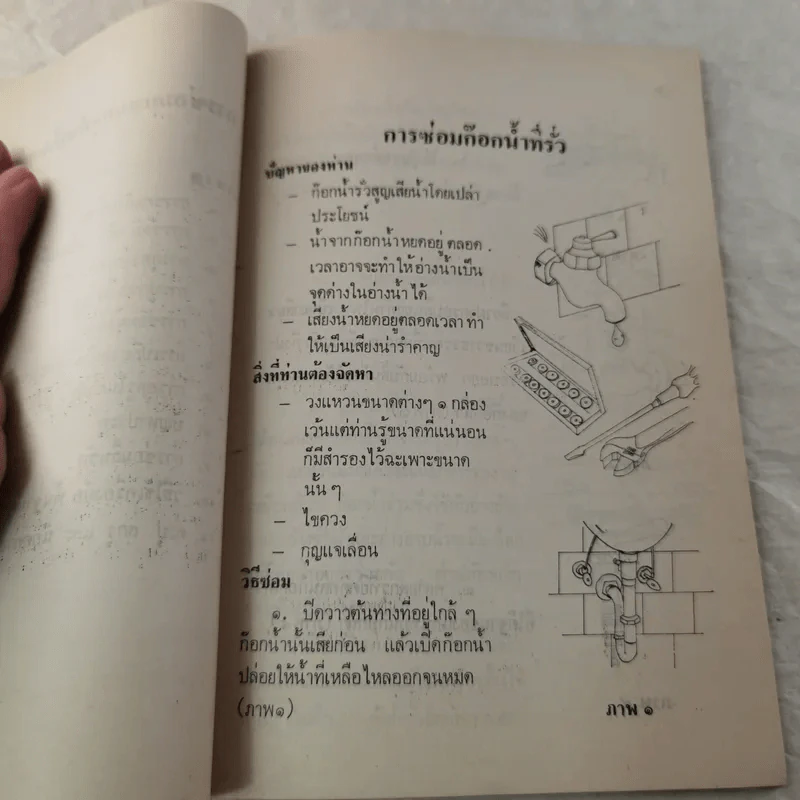 การซ่อมก๊อกน้ำที่รั่ว
ปัญหาของท่าน
– ก๊อกน้ำรั่วสูญเสียน้ำโดยเปล่า
ประโยชน์
– น้ำจากก๊อกน้ำหยดอยู่ ตลอด
เวลาอาจจะทำให้อ่างน้ำเป็น
จุดด่างในอ่างน้ำได้
– เสียงน้ำหยดอยู่ตลอดเวลา ทำ
ให้เป็นเสียงน่ารำคาญ
สิ่งที่ท่านต้องจัดหา
– วงแหวนขนาดต่างๆ ๑ กล่อง
เว้นแต่ท่านรู้ขนาดที่แน่นอน
ก็มีสำรองไว้ฉะเพาะขนาด
นั้น ๆ
– ไขควง
– กุญแจเลื่อน
วิธีซ่อม
๑. ปิดวาวต้นทางที่อยู่ใกล้ ๆ
ก๊อกน้ำนั้นเสียก่อน แล้วเปิดก๊อกน้ำ
ปล่อยให้น้ำที่เหลือไหลออกจนหมด
(ภาพ๑)
ภาพ ๑